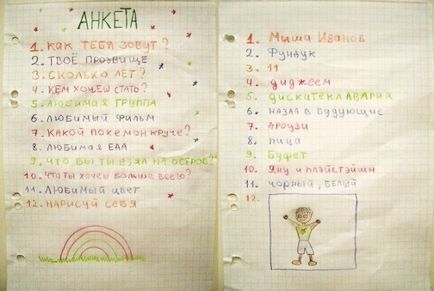 АНКЕТА
1. КАК ТЕБЯ ЗОВУТ?
2. ТВОЁ ПРОЗВИЩЕ
3. СКОЛЬКО ЛЕТ?
4. КЕМ ХОЧЕШ СТАТЬ?
5. ЛЮБИМАЯ ГРУППА
6. ЛЮБИМЫЙ ФИЛЬМ
7. КАКОЙ ПОКЕМОН КРУЧЕ?
8. ЛЮБИМАЯ ЕДА
9. ЧТО БЫ ТЫ ВЗЯЛ НА ОСТРОВ?
10. ЧТО ТЫ ХОЧЕШ БОЛЬШЕ ВСЕГО?
11. ЛЮБИМЫЙ ЦВЕТ
12. НАРИСУЙ СЕБЯ
1. Миша Иванов
2. Фундук
3. 11
4. диджеем
5. дискитека авария
6. назад в будующие
7. дроузи
8. пица
9. Буфет
10. Яну и плэйстэйшн
11. чорный, белый
12.